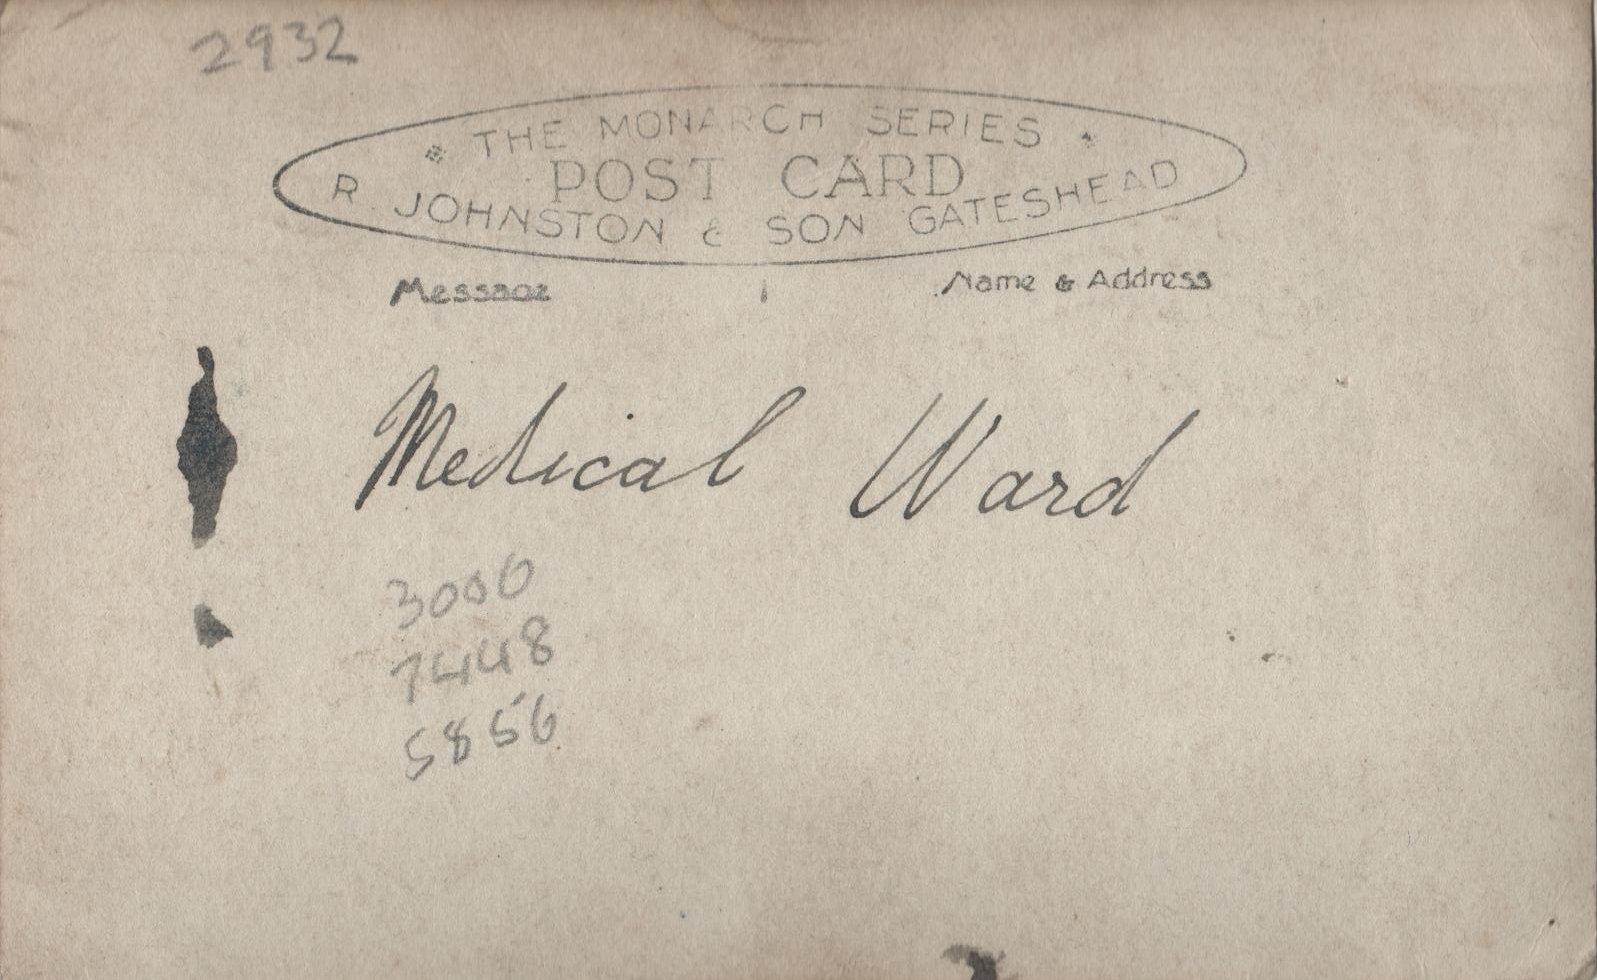 2932
THE MONARCH SERIES
POST CARD
R. JOHNSTON & SON GATESHEAD
Message
Name & Address
Medical Ward
3006
7448
5856